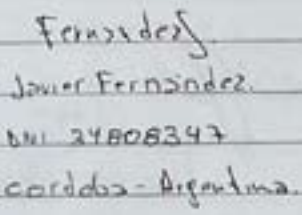 Fernandez
Javier Fernandez.
DNI 24808347
cordoba - Argentina.